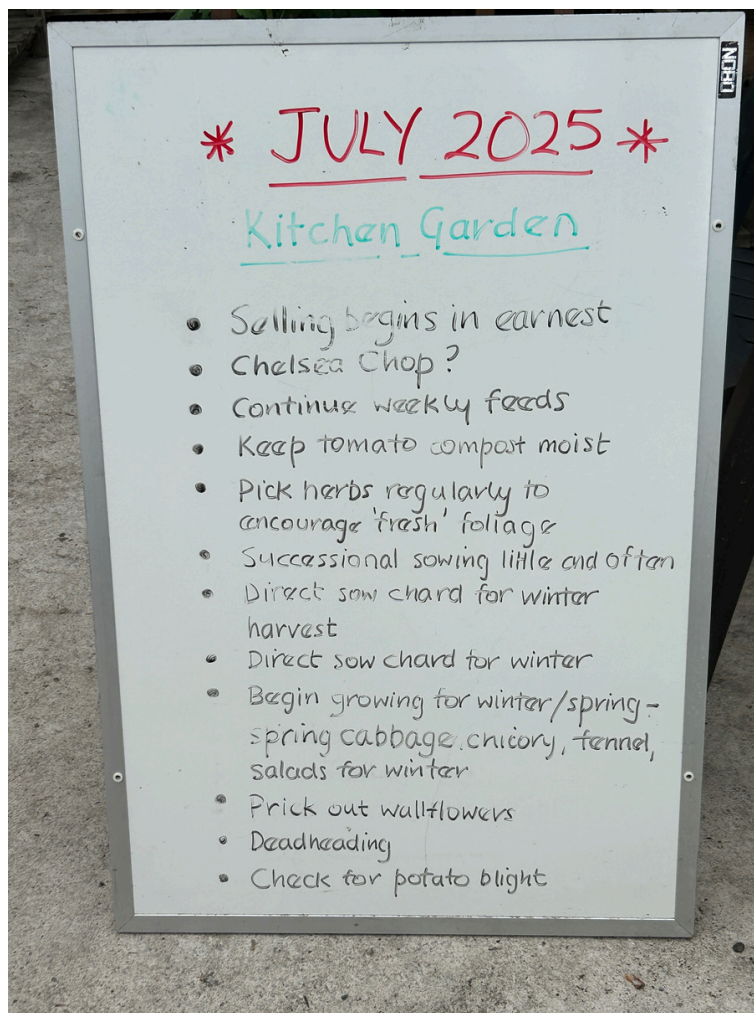 * JULY 2025 *
Kitchen Garden
• Selling begins in earnest
• Chelsea Chop?
• Continue weekly feeds
• Keep tomato compost moist
• Pick herbs regularly to
encourage 'fresh' foliage
• Successional sowing little and often
• Direct sow chard for winter
harvest
• Direct sow chard for winter
• Begin growing for winter/spring-
spring cabbage, chicory, fennel,
salads for winter
• Prick out wallflowers
• Deadheading
• Check for potato blight
NOBO